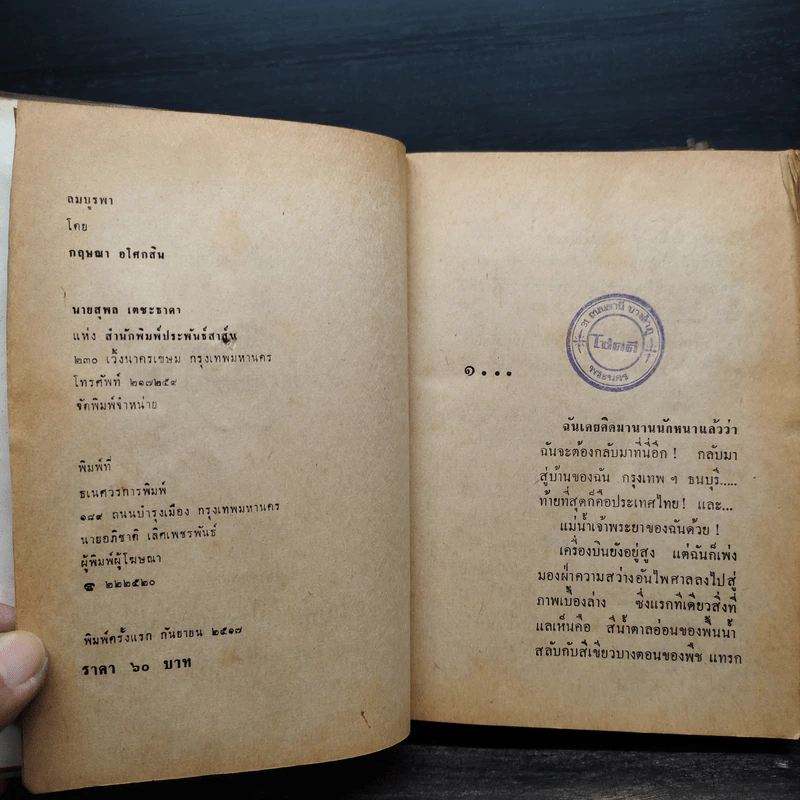 ลมบูรพา
โดย
กฤษณา อโศกสิน
นายสุพล เตชะธาดา
แห่ง สำนักพิมพ์ประพันธ์สาส์น
๒๓๐ เวิ้งนาครเขษม กรุงเทพมหานคร
โทรศัพท์ ๒๑๗๒๕๙
จัดพิมพ์จำหน่าย
พิมพ์ที่
ธเนศวรการพิมพ์
๑๘๙ ถนนบำรุงเมือง กรุงเทพมหานคร
นายอภิชาติ เลิศเพชรพันธ์
ผู้พิมพ์ผู้โฆษณา
๒๒๒๕๒๐
พิมพ์ครั้งแรก กันยายน ๒๕๑๗
ราคา ๖๐ บาท
บางลำภู
โชคดี
พระนคร
๑...
ฉันเคยคิดมานานนักหนาแล้วว่า
ฉันจะต้องกลับมาที่นี่อีก! กลับมา
สู่บ้านของฉัน กรุงเทพ ฯ ธนบุรี.....
ท้ายที่สุดก็คือประเทศไทย! และ...
แม่น้ำเจ้าพระยาของฉันด้วย!
เครื่องบินยังอยู่สูง แต่ฉันก็เพ่ง
มองฝ่าความสว่างอันไพศาลลงไปสู่
ภาพเบื้องล่าง ซึ่งแรกทีเดียวสิ่งที่
แลเห็นคือ สีน้ำตาลอ่อนของพื้นน้ำ
สลับกับสีเขียวบางตอนของพืช แทรก